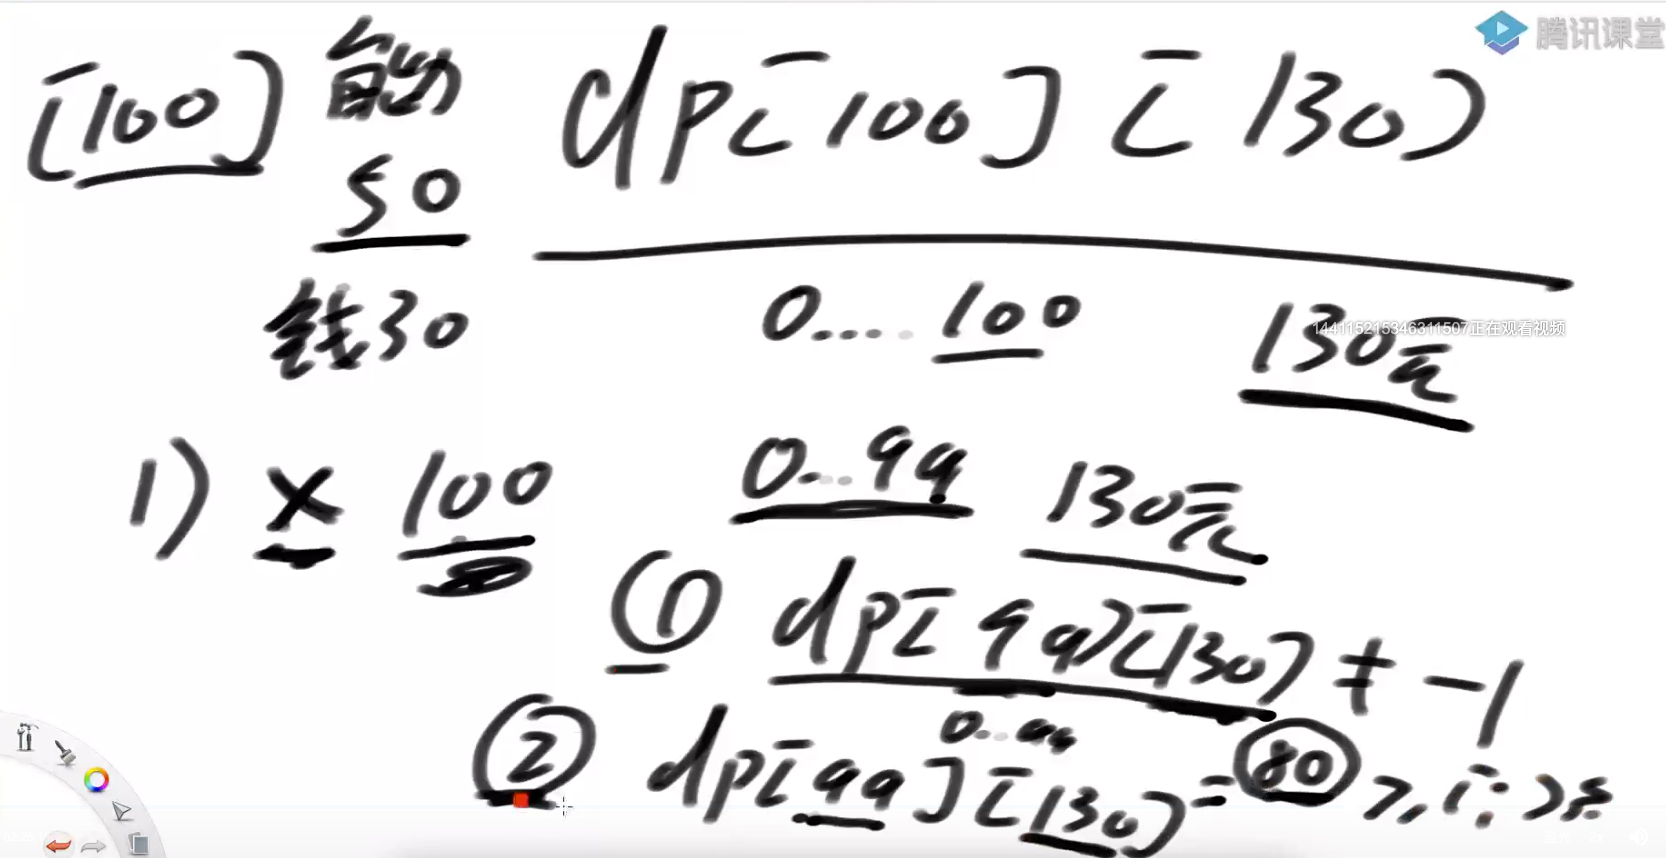 腾讯课堂
[100] 能力 dp[100][130]
50
钱30 0....100 130元
144115215346311507正在观看视频
1) x 100 0...99 130元
① dp[99][130] ≠ -1
0..99
② dp[99][130] = 80 ≥ i: